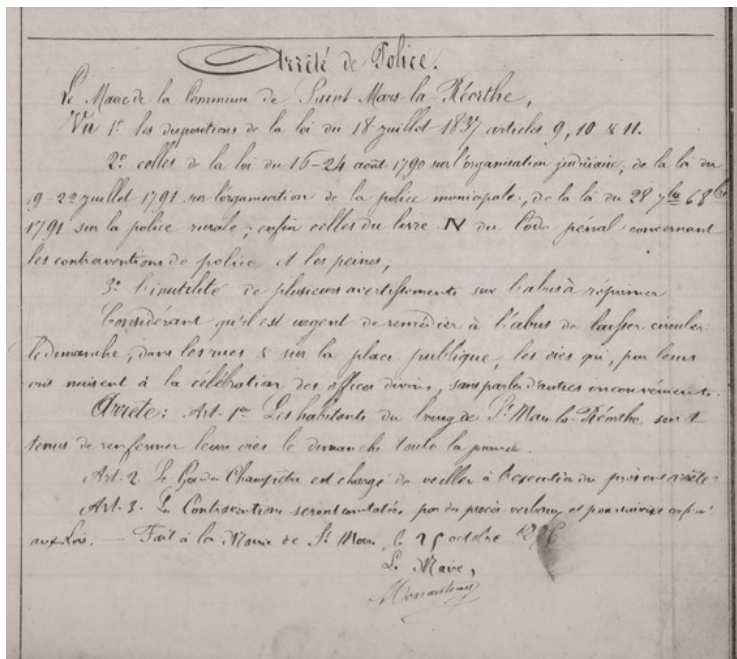 Arrêté de Police.
Le Maire de la Commune de Saint Mars la Réorthe,
Vu 1º les dispositions de la loi du 18 juillet 1837 articles 9, 10 & 11.
2º celles de la loi du 16-24 août 1790 sur l'organisation judiciaire; de la loi du
19-22 juillet 1791 sur l'organisation de la police municipale, de la loi du 28 7bre 6 8bre
1791 sur la police rurale; enfin celles du livre IV du Code pénal concernant
les contraventions de police et les peines,
3º l'inutilité de plusieurs avertissements sur l'abus à réprimer
Considérant qu'il est urgent de remédier à l'abus de laisser circuler
le dimanche, dans les rues & sur la place publique, les oies qui, par leurs
cris nuisent à la célébration des offices divins, sans parler d'autres inconvénients.
Arrête: Art. 1er Les habitants du bourg de St Mars-la-Réorthe sont
tenus de renfermer leurs oies le dimanche toute la journée.
Art. 2. Le Garde Champêtre est chargé de veiller à l'exécution du présent arrêté.
Art. 3. Les Contraventions seront constatées par des procès verbaux et poursuivies
aux lois. — Fait à la Mairie de St Mars, le 25 octobre
Le Maire,